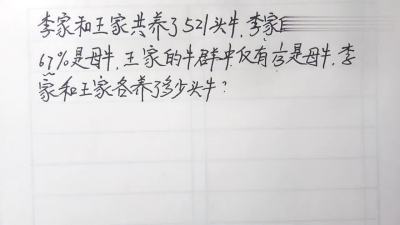 李家和王家共养了521头牛,李家
67%是母牛,王家的牛群中仅有1/13是母牛,李
家和王家各养了多少头牛?